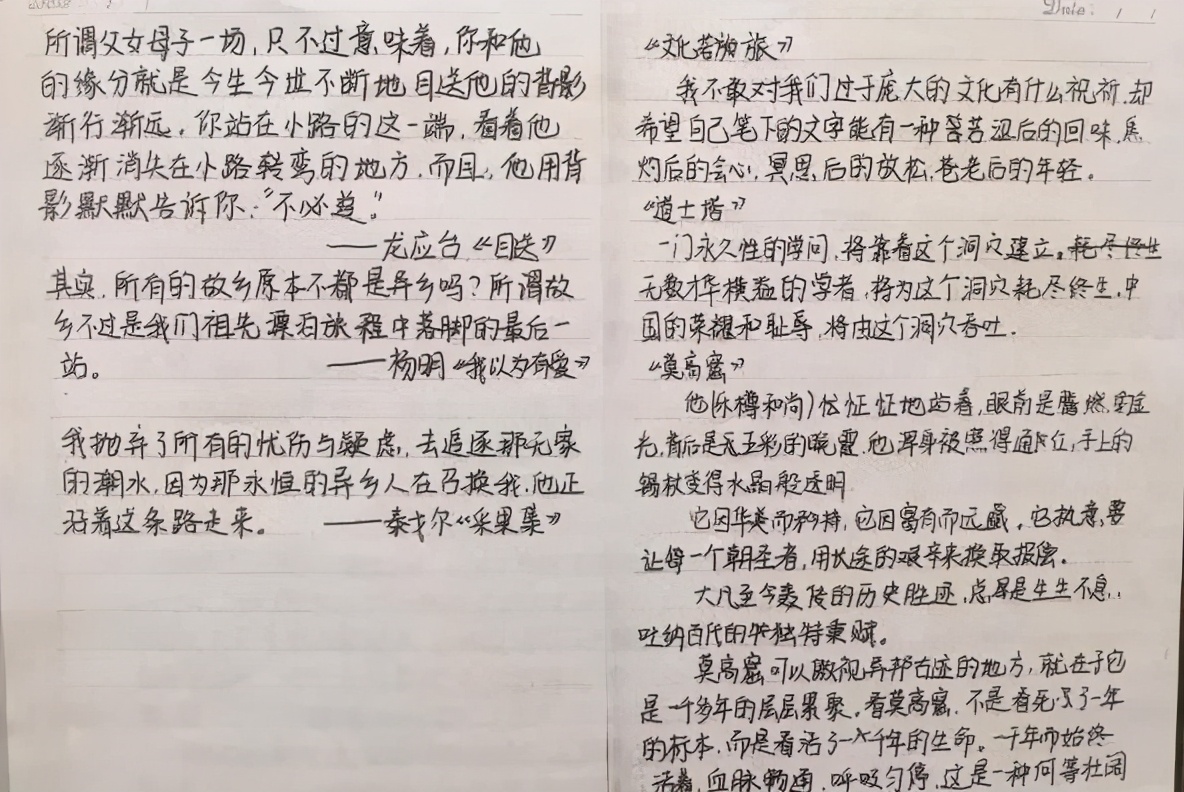 所谓父女母子一场,只不过意味着,你和他
的缘分就是今生今世不断地目送他的背影
渐行渐远。你站在小路的这一端,看着他
逐渐消失在小路转弯的地方,而且,他用背
影默默告诉你:“不必追。”
——龙应台《目送》
其实,所有的故乡原本不都是异乡吗?所谓故
乡不过是我们祖先漂泊旅程中落脚的最后一
站。 ——杨明《我以为有爱》
我抛弃了所有的忧伤与疑虑,去追逐那无家
的潮水,因为那永恒的异乡人在召换我,他正
沿着这条路走来。 ——泰戈尔《采果集》
Date: / /
《文化苦旅》
我不敢对我们过于庞大的文化有什么祝祈,却
希望自己笔下的文字能有一种苦涩后的回味,焦
灼后的会心,冥思后的放松,苍老后的年轻。
《道士塔》
一门永久性的学问,将靠着这个洞穴建立。耗尽终生
无数才华横溢的学者,将为这个洞穴耗尽终生,中
国的荣耀和耻辱,将由这个洞穴吞吐.
《莫高窟》
他(乐樽和尚)怔怔地站着,眼前是腾燃金
光,背后是五彩的晚霞,他浑身被照得通红,手上的
锡杖变得水晶般透明
它因华美而矜持,它因富有而远藏。它执意要
让每一个朝圣者,用长途的艰辛来换取报偿。
大凡至今轰传的历史胜迹,总是生生不息、
吐纳百代的独特禀赋。
莫高窟可以傲视异邦古迹的地方,就在于它
是一千多年的层层累聚。看莫高窟,不是看死了一千年
的标本,而是看活了一千年的生命。一千年而始终
活着,血脉畅通,呼吸匀停,这是一种何等壮阔